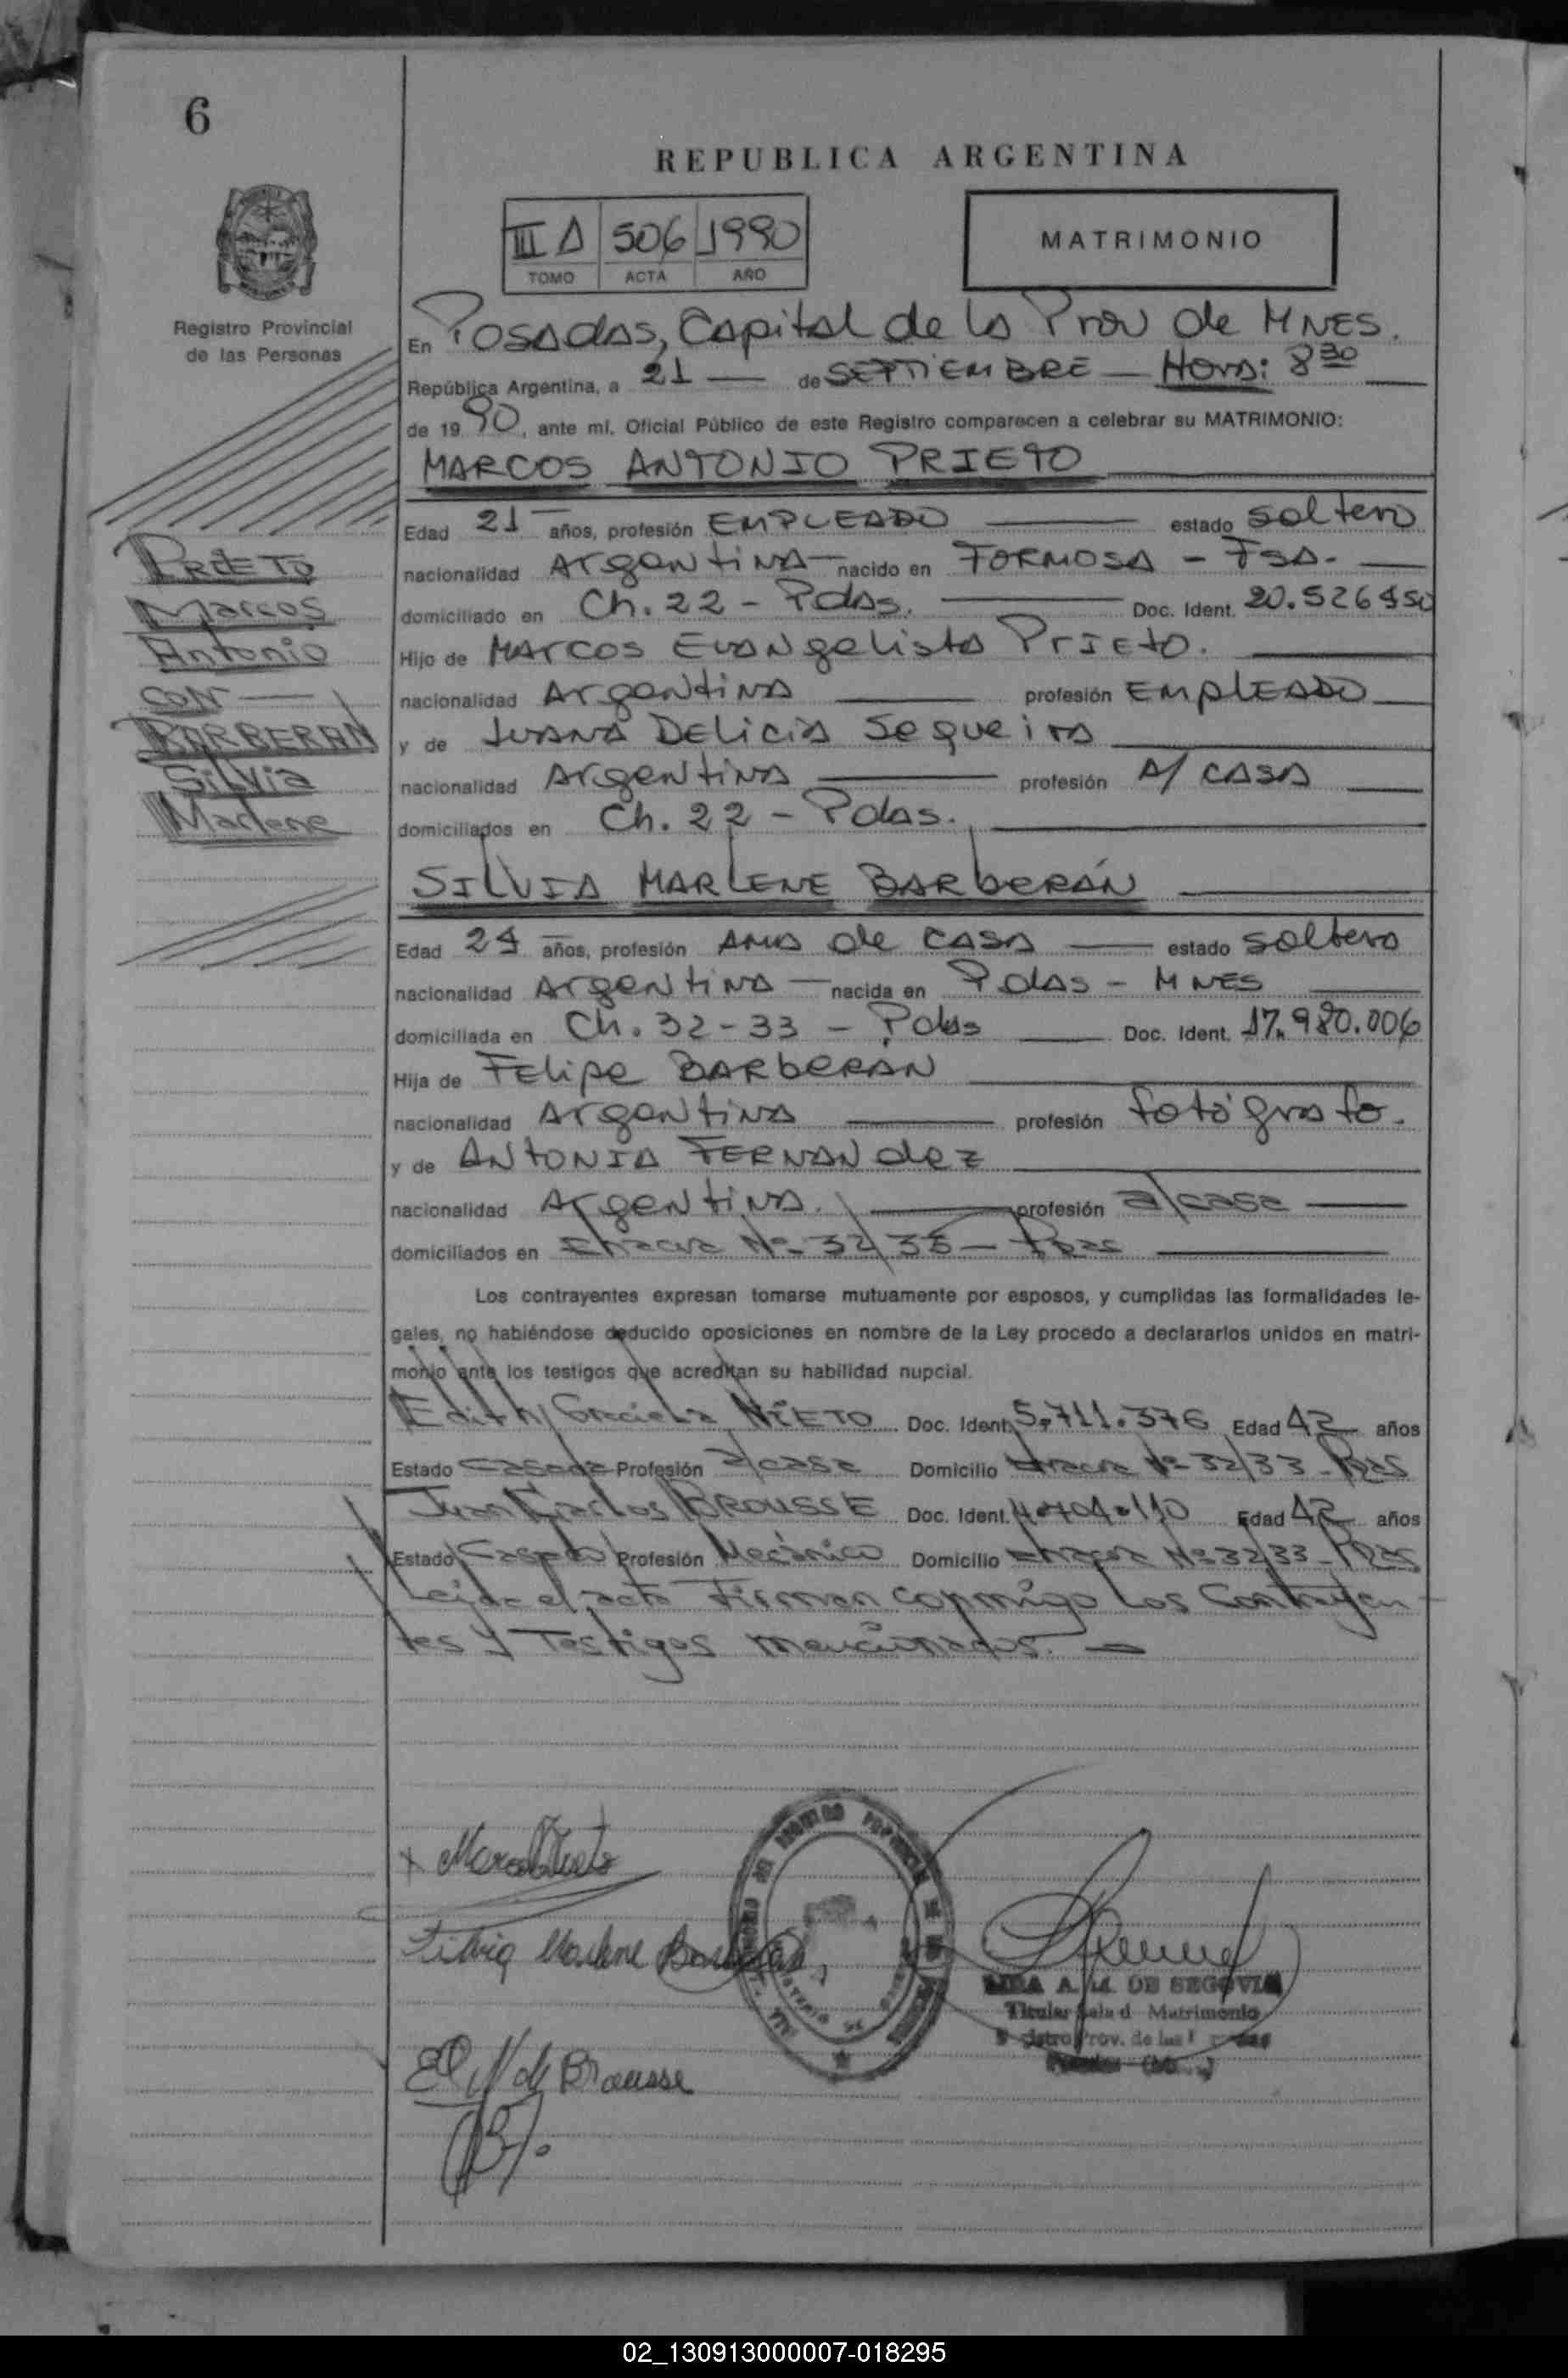 6
REPUBLICA ARGENTINA
III A 506 1990
TOMO ACTA AÑO
MATRIMONIO
Registro Provincial
de las Personas
En Posadas, Capital de la Prov de MNES.
República Argentina, a 21 — de SEPTIEMBRE — Hora: 8 30
de 19 90, ante mí. Oficial Público de este Registro comparecen a celebrar su MATRIMONIO:
MARCOS ANTONIO PRIETO
Edad 21 años, profesión EMPLEADO estado soltero
nacionalidad Argentina nacido en FORMOSA - FSA.
domiciliado en Ch. 22 - Pdas. Doc. Ident. 20.526.450
Hijo de Marcos Evangelista Prieto.
nacionalidad Argentina profesión EMPLEADO
y de Juana Delicia Sequeira
nacionalidad Argentina profesión A/ CASA
domiciliados en Ch. 22 - Pdas.
PRIETO
Marcos
Antonio
con
BARBERAN
Silvia
Marlene
SILVIA MARLENE BARBERÁN
Edad 24 años, profesión AMA de CASA estado soltera
nacionalidad Argentina nacida en Pdas - MNES
domiciliada en Ch. 32-33 - Pdas Doc. Ident. 17.980.006
Hija de Felipe BARBERÁN
nacionalidad Argentina profesión fotógrafo.
y de ANTONIA FERNANdez
nacionalidad Argentina. profesión a/casa
domiciliados en Chacra Nº 32/33 - Pdas
Los contrayentes expresan tomarse mutuamente por esposos, y cumplidas las formalidades le-
gales, no habiéndose deducido oposiciones en nombre de la Ley procedo a declararlos unidos en matri-
monio ante los testigos que acreditan su habilidad nupcial.
Edith Graciela NIETO Doc. Ident. 5.711.376 Edad 42 años
Estado Casada Profesión a/casa Domicilio Chacra Nº 32/33 - Pdas
Juan Carlos BROUSSE Doc. Ident. 4.704.110 Edad 42 años
Estado Casado Profesión Mecánico Domicilio Chacra Nº 32/33 - Pdas
Leída el acta Firman conmigo Los Contrayen
tes y Testigos mencionados. —
Silvia Marlene Barberán
E N de Brousse
A. M. DE SEGOVIA
Titular Sala d Matrimonio
Prov. de las
02_130913000007-018295